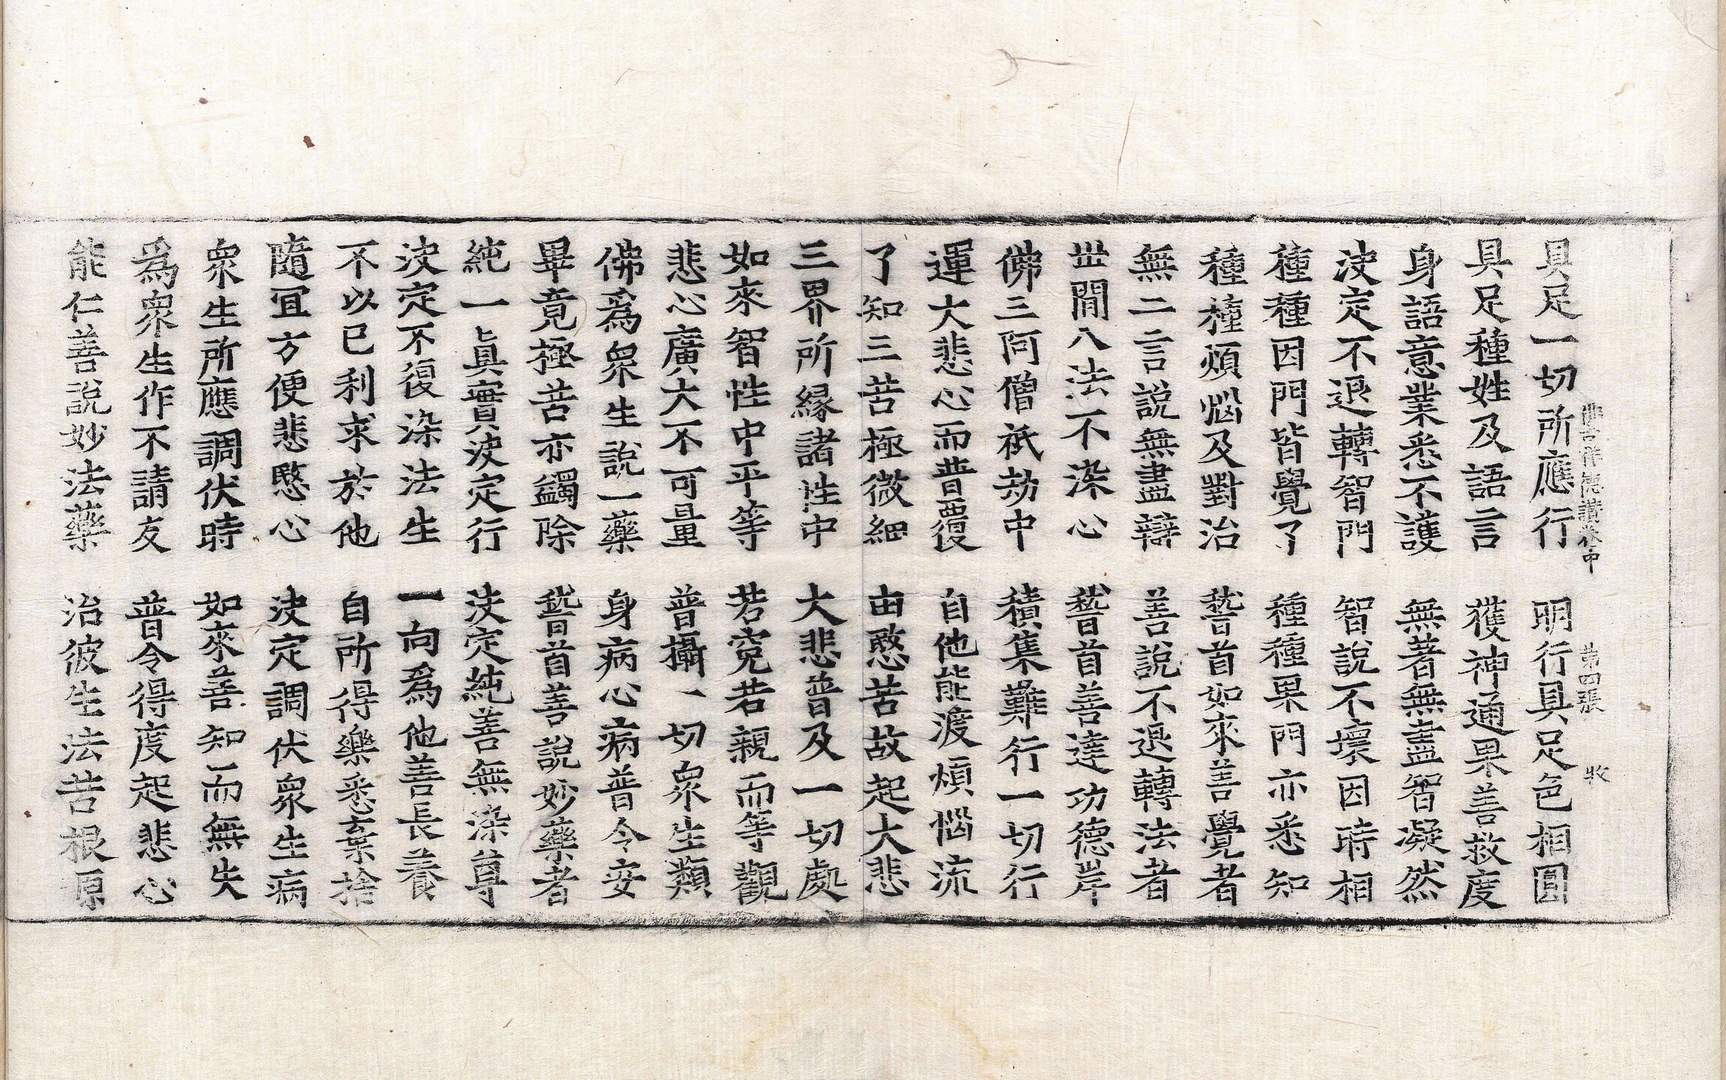 具足一切所應行　明行具足色相圓
佛吉祥德讃卷中　第四張　牧
具足種姓及語言　獲神通果善救度
身語意業悉不護　無著無盡智凝然
決定不退轉智門　智說不壞因時相
種種因門皆覺了　種種果門亦悉知
種種煩惱及對治　稽首如來善覺者
無二言說無盡辯　善說不退轉法者
世間八法不染心　稽首善達功德岸
佛三阿僧祇劫中　積集難行一切行
運大悲心而普覆　自他能渡煩惱流
了知三苦極微細　由愍苦故起大悲
三界所緣諸性中　大悲普及一切處
如來智性中平等　若寃若親而等觀
悲心廣大不可量　普攝一切衆生類
佛爲衆生說一藥　身病心病普令安
畢竟極苦亦蠲除　稽首善說妙藥者
純一眞實決定行　決定純善無染尊
決定不復染法生　一向爲他善長養
不以己利求於他　自所得樂悉棄捨
隨宜方便悲愍心　決定調伏衆生病
衆生所應調伏時　如來善知而無失
爲衆生作不請友　普令得度起悲心
能仁善說妙法藥　治彼生法苦根源